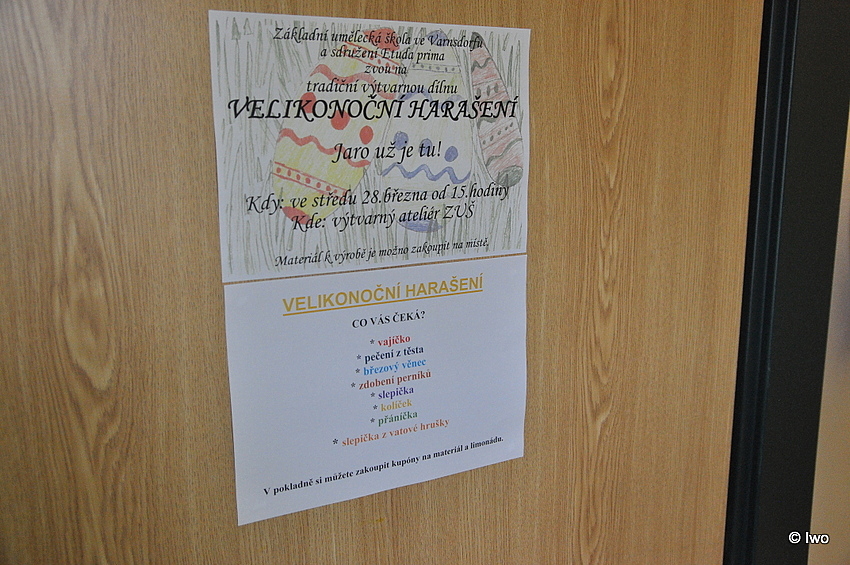 Základní umělecká škola ve Varnsdorfu
a sdružení Etuda prima
zvou na
tradiční výtvarnou dílnu
VELIKONOČNÍ HARAŠENÍ
Jaro už je tu!
Kdy: ve středu 28.března od 15.hodiny
Kde: výtvarný ateliér ZUŠ
Materiál k výrobě je možno zakoupit na místě.
VELIKONOČNÍ HARAŠENÍ
CO VÁS ČEKÁ?
* vajíčko
* pečení z těsta
* březový věnec
* zdobení perníků
* slepička
* kolíček
* přáníčka
* slepička z vatové hrušky
V pokladně si můžete zakoupit kupóny na materiál a limonádu.
© Iwo